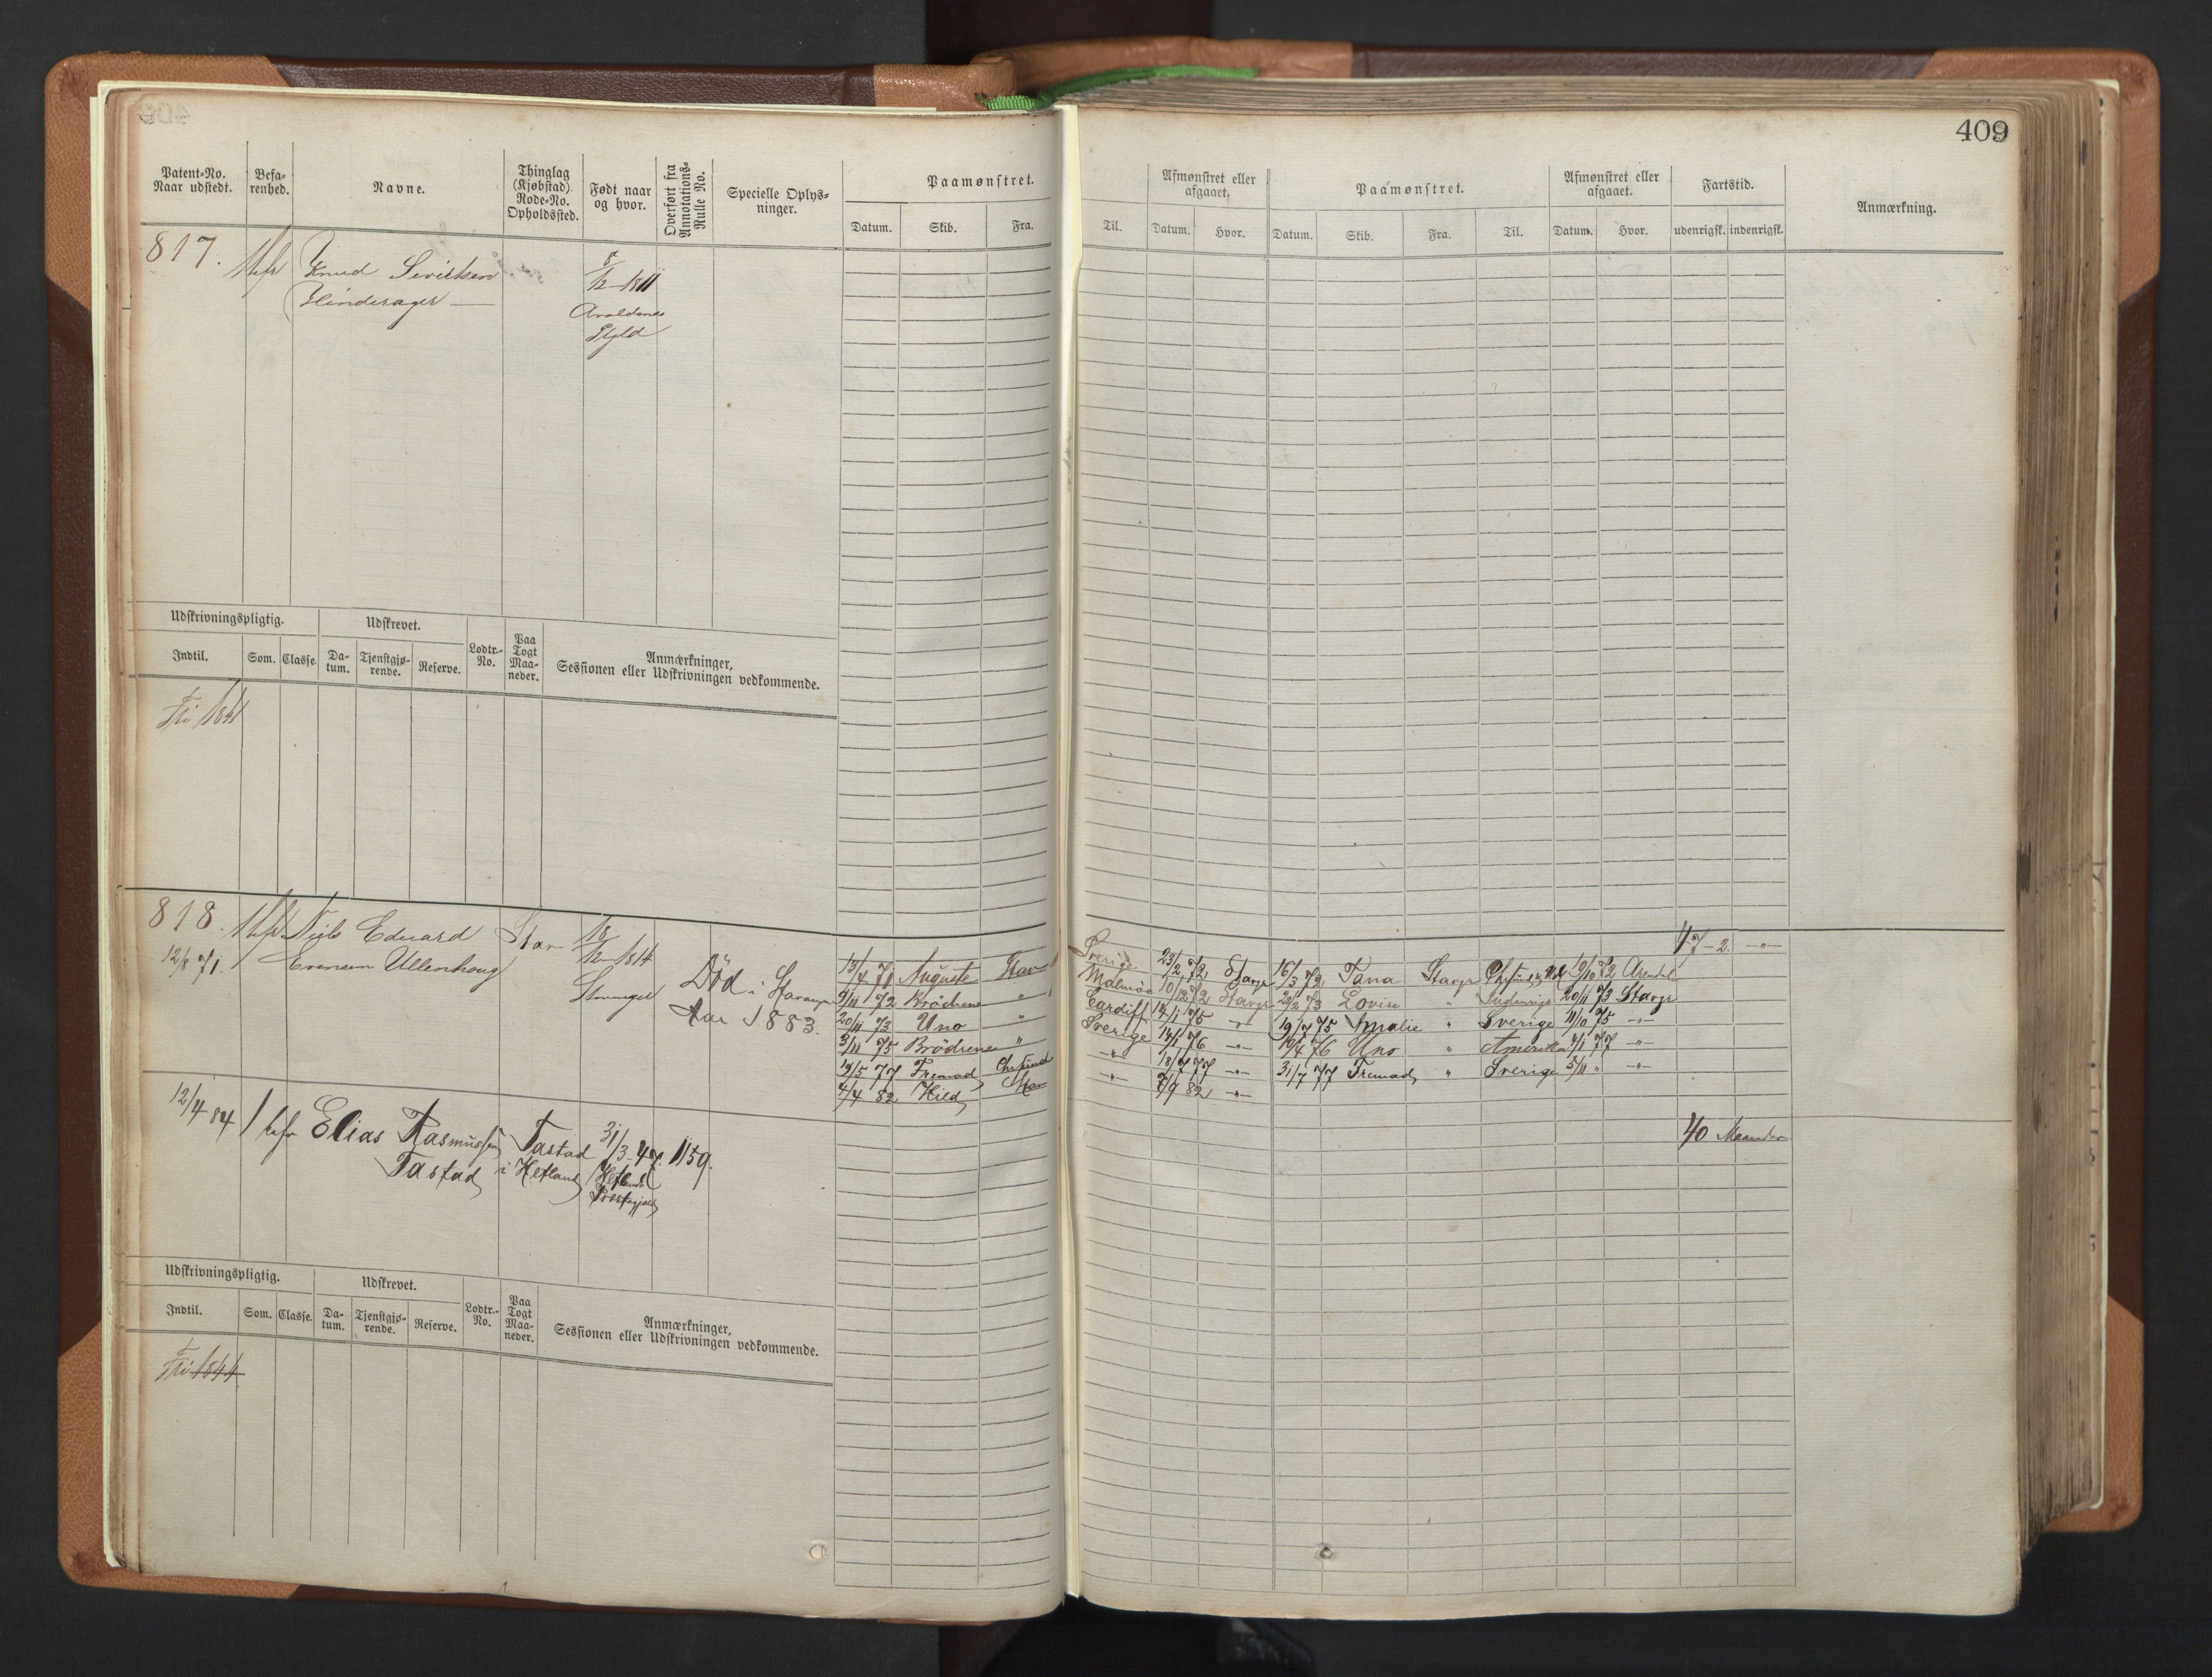 409
Patent-No. Naar udstedt.
Befa-renhed.
Navne.
Thinglag (Kjøbstad). Rode-No. Opholdssted.
Født naar og hvor.
Overført fra Annotations-Rulle No.
Specielle Oplys-ninger.
Paamønstret.
Datum. Skib. Fra.
Til.
Afmønstret eller afgaaet.
Datum. Hvor.
Paamønstret.
Datum. Skib. Fra. Til.
Afmønstret eller afgaaet.
Datum. Hvor.
Fartstid.
udenrigsk. indenrigsk.
Anmærkning.
817. Knud
Hinderager
8/12 1811
Udskrivningspligtig. Udskrevet.
Lodtr.-No.
Paa Togt Maa-neder.
Anmærkninger, Sessionen eller Udskrivningen vedkommende.
Indtil. Som. Classe. Da-tum. Tjenstgjø-rende. Reserve.
Fri 1841
818. Niels Eduard Stav 18/12 1814
12/8 71. Evensen Ullenhaug Stavanger
Død i Stavanger
Aar 1883.
47-2 -"-
13/4 71 Auguste Stav Sverige 23/2 72 Stavgr 16/3 72 Tana Stavgr 19/10 72 Arendal
9/11 72 Brödrene " Malmöe 10/12 72 Stavgr 20/2 73 Lovise " Indenrigs 20/11 73 Stavgr
20/11 73 Uno " Cardiff 14/1 75 -"- 19/7 75 Amalie " Sverige 11/10 75 -"-
3/11 75 Brödrene " Sverige 14/1 76 -"- 19/4 76 Uno " Amerika 4/1 77 -"-
19/5 77 Fremad Chrsund -"- 18/7 77 -"- 31/7 77 Fremad " Sverige 5/11 " -"-
4/4 82 Hild Stav -"- 7/9 82 -"-
12/4 84 Elias Rasmussen Tastad 31/3-47. 1159.
Tastad i Hetland Hetlands Præstegjeld
40 Maaneder
Udskrivningspligtig. Udskrevet.
Lodtr.-No.
Paa Togt Maa-neder.
Anmærkninger, Sessionen eller Udskrivningen vedkommende.
Indtil. Som. Classe. Da-tum. Tjenstgjø-rende. Reserve.
Fri 1844